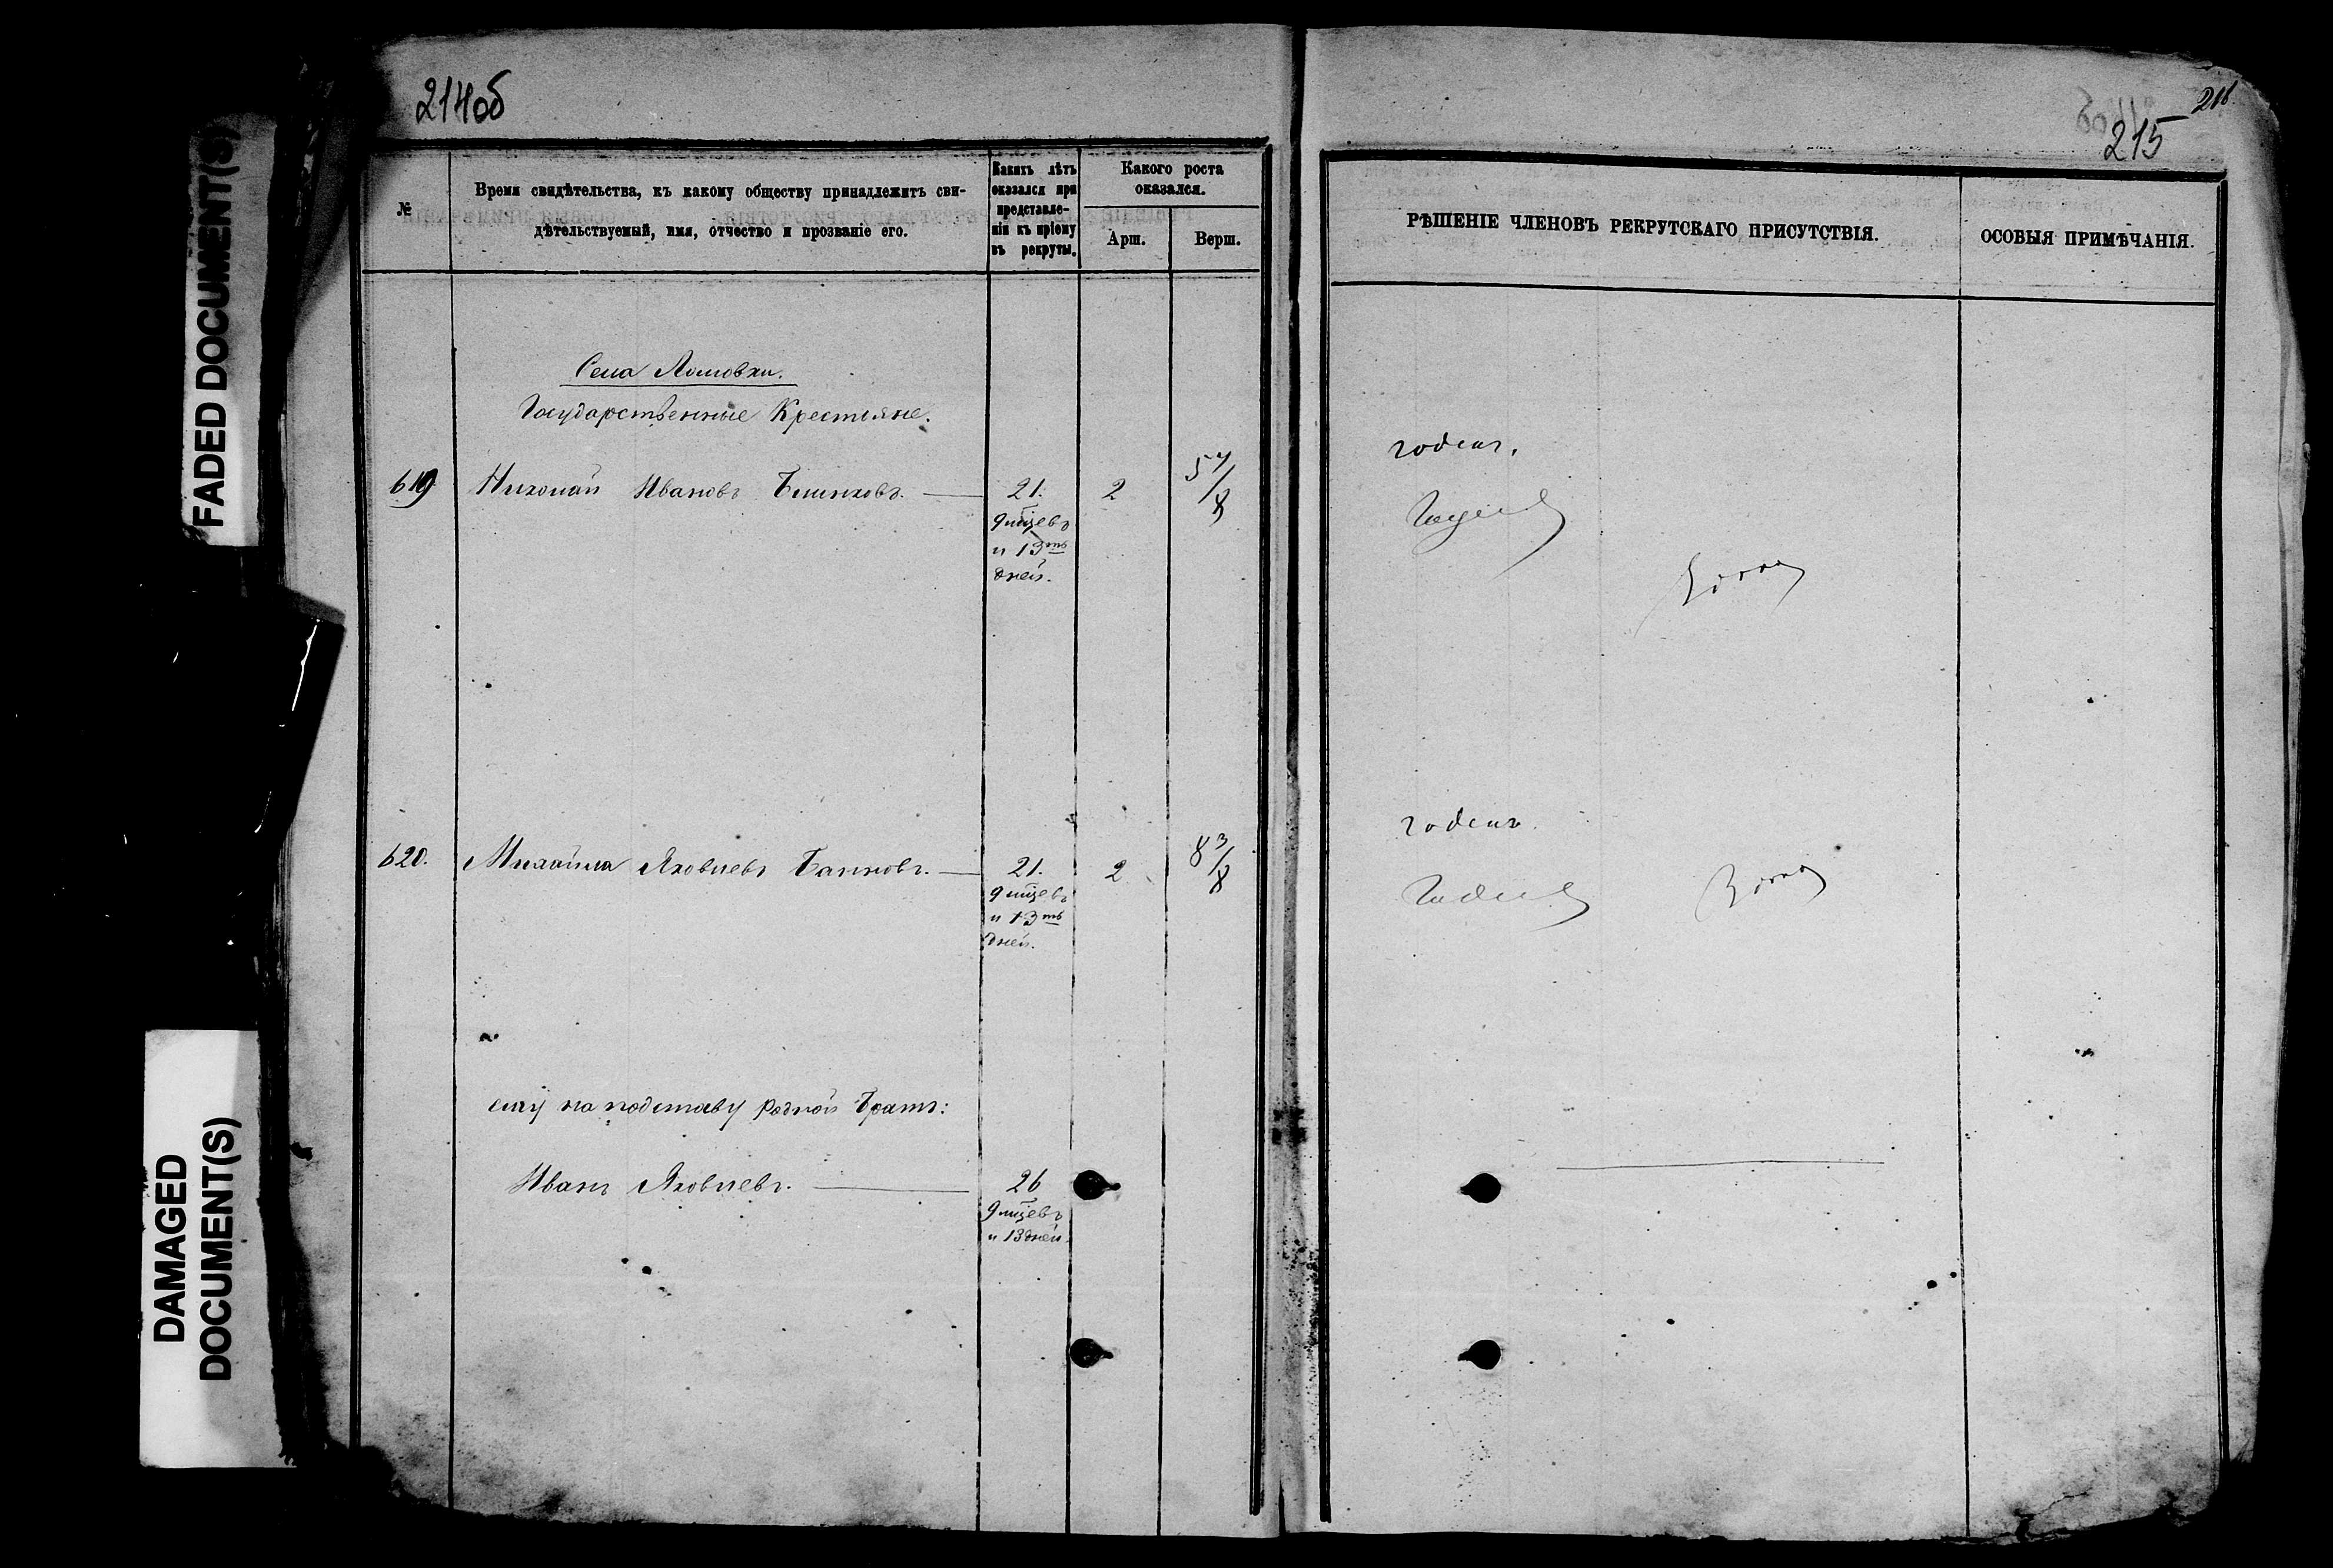 FADED DOCUMENT(S)
DAMAGED
DOCUMENT(S)
214об
№
Время свидѣтельства, къ какому обществу принадлежитъ сви-
дѣтельствуемый, имя, отчество и прозваніе его.
Какихъ лѣтъ
оказался при
представле-
ніи къ пріему
въ рекруты.
Какого роста
оказался.
Арш.
Верш.
Села Ломовки.
Государственные Крестьяне.
619 Николай Ивановъ Блинковъ. 21. 2 5 4/8
9 мцевъ
и 13ть
дней.
620. Михайла Яковлевъ Банновъ. 21. 2 8 3/8
9 мцевъ
и 13ть
дней.
ему на подставу родной братъ:
Иванъ Яковлевъ. 26
9 мцевъ
и 13 дней.
216
215
РѢШЕНІЕ ЧЛЕНОВЪ РЕКРУТСКАГО ПРИСУТСТВІЯ.
ОСОБЫЯ ПРИМѢЧАНІЯ.
годенъ.
годенъ.